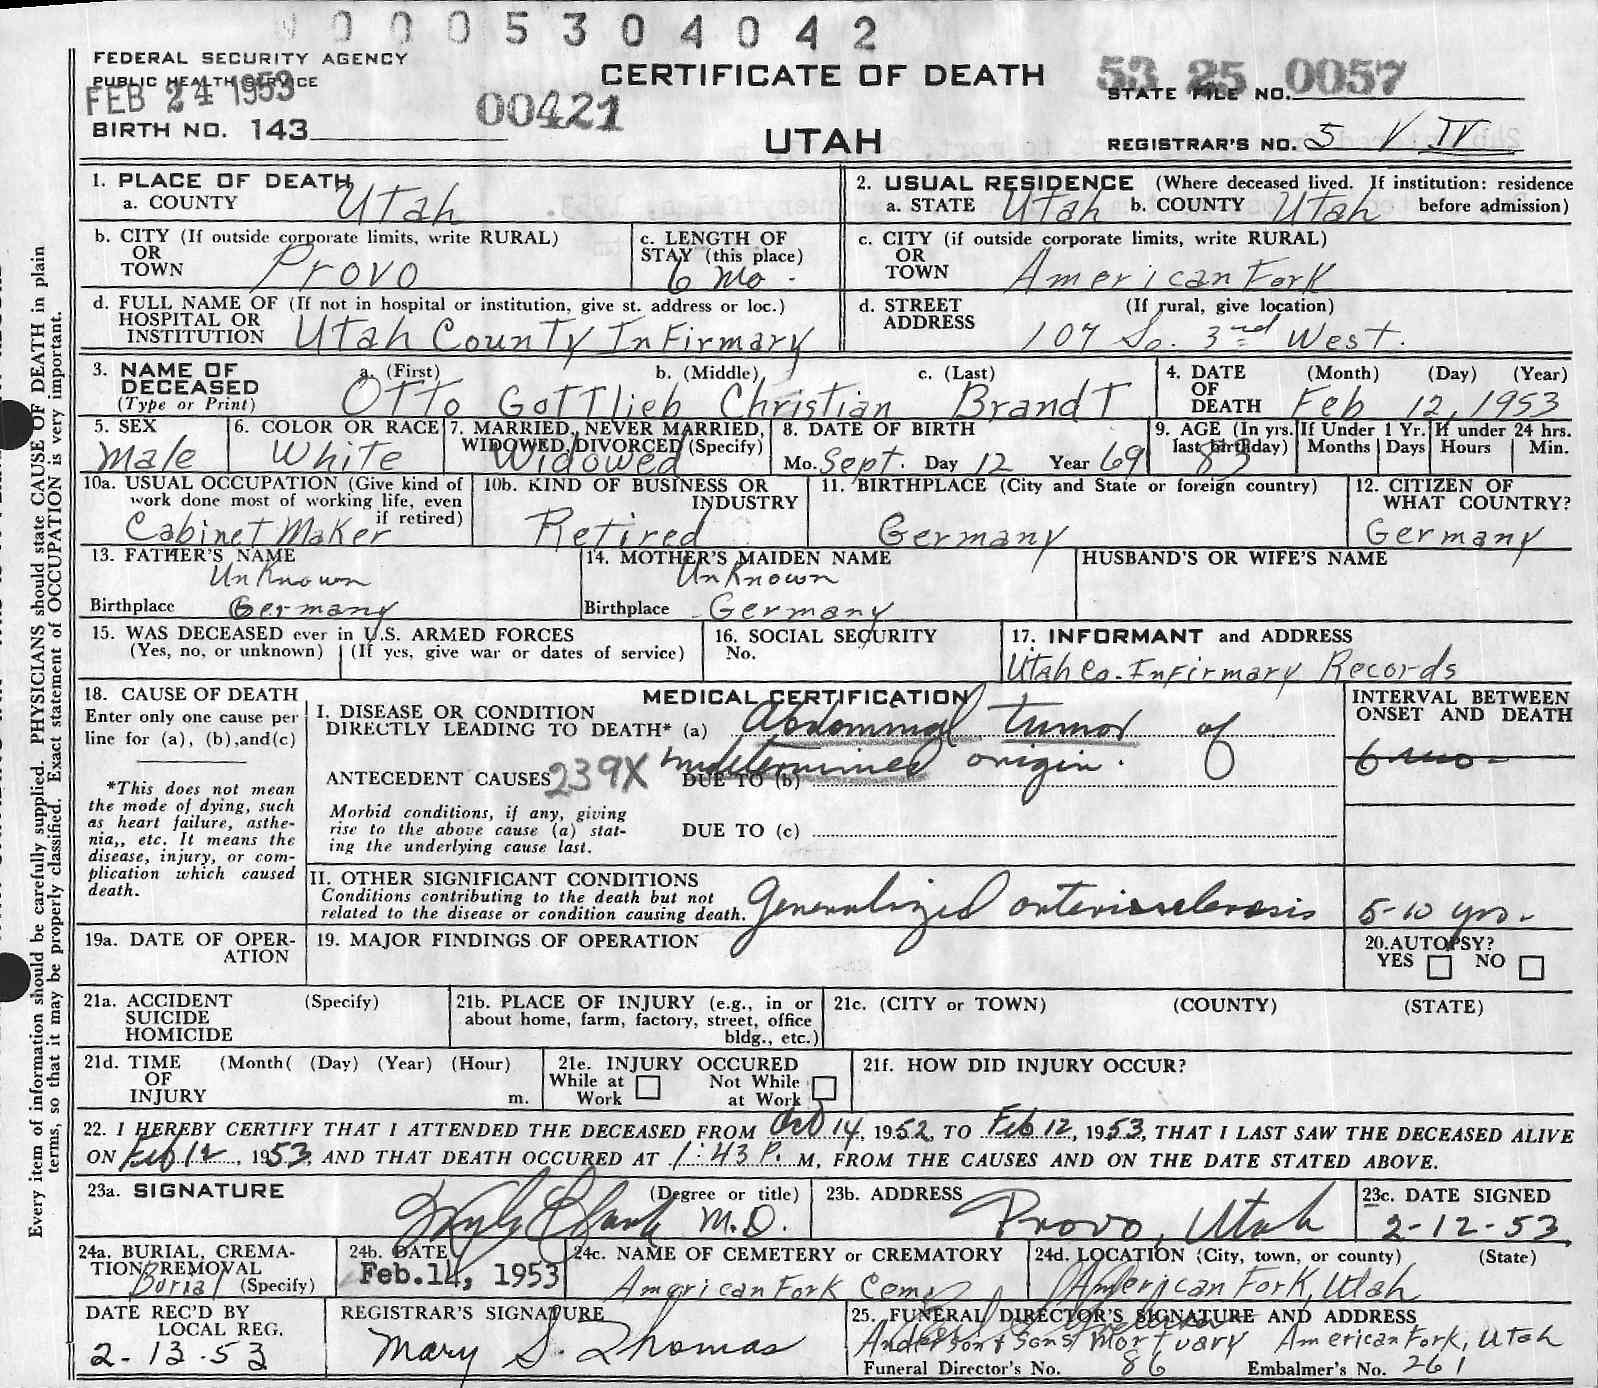 0005304042
FEDERAL SECURITY AGENCY
PUBLIC HEALTH SERVICE
FEB 24 1953
CERTIFICATE OF DEATH
53 25 0057
STATE FILE NO.
00421
BIRTH NO. 143
UTAH
REGISTRAR'S NO. 5 V IV
1. PLACE OF DEATH
a. COUNTY Utah
2. USUAL RESIDENCE (Where deceased lived. If institution: residence
a. STATE Utah b. COUNTY Utah before admission)
b. CITY (If outside corporate limits, write RURAL)
OR
TOWN Provo
c. LENGTH OF
STAY (this place)
6 mo.
c. CITY (if outside corporate limits, write RURAL)
OR
TOWN American Fork
d. FULL NAME OF (If not in hospital or institution, give st. address or loc.)
HOSPITAL OR
INSTITUTION Utah County Infirmary
d. STREET (If rural, give location)
ADDRESS 107 So. 3rd West.
3. NAME OF a. (First) b. (Middle) c. (Last)
DECEASED
(Type or Print) Otto Gottlieb Christian Brandt
4. DATE (Month) (Day) (Year)
OF
DEATH Feb 12, 1953
5. SEX
Male
6. COLOR OR RACE
White
7. MARRIED, NEVER MARRIED,
WIDOWED, DIVORCED (Specify)
Widowed
8. DATE OF BIRTH
Mo. Sept. Day 12 Year 69
9. AGE (In yrs. last birthday) 83
If Under 1 Yr. Months Days
If under 24 hrs. Hours Min.
10a. USUAL OCCUPATION (Give kind of
work done most of working life, even
if retired)
Cabinet Maker
10b. KIND OF BUSINESS OR
INDUSTRY
Retired
11. BIRTHPLACE (City and State or foreign country)
Germany
12. CITIZEN OF
WHAT COUNTRY?
Germany
13. FATHER'S NAME
Unknown
Birthplace Germany
14. MOTHER'S MAIDEN NAME
Unknown
Birthplace Germany
HUSBAND'S OR WIFE'S NAME
15. WAS DECEASED ever in U.S. ARMED FORCES
(Yes, no, or unknown) (If yes, give war or dates of service)
16. SOCIAL SECURITY
No.
17. INFORMANT and ADDRESS
Utah Co. Infirmary Records
18. CAUSE OF DEATH
Enter only one cause per
line for (a), (b), and (c)
*This does not mean
the mode of dying, such
as heart failure, asthe-
nia,, etc. It means the
disease, injury, or com-
plication which caused
death.
MEDICAL CERTIFICATION
I. DISEASE OR CONDITION
DIRECTLY LEADING TO DEATH* (a) Abdominal tumor of
undetermined origin.
ANTECEDENT CAUSES 239X DUE TO (b)
Morbid conditions, if any, giving
rise to the above cause (a) stat-
ing the underlying cause last.
DUE TO (c)
INTERVAL BETWEEN
ONSET AND DEATH
6 mo-
II. OTHER SIGNIFICANT CONDITIONS
Conditions contributing to the death but not
related to the disease or condition causing death. Generalized arteriosclerosis
5-10 yrs.
19a. DATE OF OPER-
ATION
19. MAJOR FINDINGS OF OPERATION
20. AUTOPSY?
YES NO
21a. ACCIDENT (Specify)
SUICIDE
HOMICIDE
21b. PLACE OF INJURY (e.g., in or
about home, farm, factory, street, office
bldg., etc.)
21c. (CITY or TOWN) (COUNTY) (STATE)
21d. TIME (Month( (Day) (Year) (Hour)
OF
INJURY m.
21e. INJURY OCCURED
While at Work Not While at Work
21f. HOW DID INJURY OCCUR?
22. I HEREBY CERTIFY THAT I ATTENDED THE DECEASED FROM Oct 14, 1952, TO Feb 12, 1953, THAT I LAST SAW THE DECEASED ALIVE
ON Feb 12, 1953, AND THAT DEATH OCCURED AT 1:43 P. M, FROM THE CAUSES AND ON THE DATE STATED ABOVE.
23a. SIGNATURE (Degree or title)
M.D.
23b. ADDRESS
Provo, Utah
23c. DATE SIGNED
2-12-53
24a. BURIAL, CREMA-
TION, REMOVAL
Burial (Specify)
24b. DATE
Feb. 14, 1953
24c. NAME OF CEMETERY or CREMATORY
American Fork Cem
24d. LOCATION (City, town, or county) (State)
American Fork, Utah
DATE REC'D BY
LOCAL REG.
2-13-53
REGISTRAR'S SIGNATURE
Mary S. Thomas
25. FUNERAL DIRECTOR'S SIGNATURE AND ADDRESS
Anderson & Sons Mortuary American Fork, Utah
Funeral Director's No. 86 Embalmer's No. 261
Every item of information should be carefully supplied. PHYSICIANS should state CAUSE OF DEATH in plain
terms, so that it may be properly classified. Exact statement of OCCUPATION is very important.